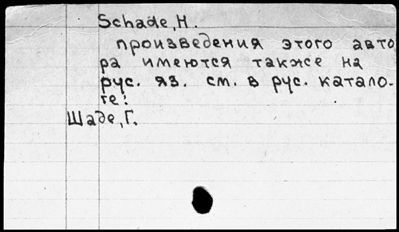 Schade, H.
произведения этого авто
ра имеются также на
рус. яз. см. в рус. катало-
ге:
Шаде, Г.